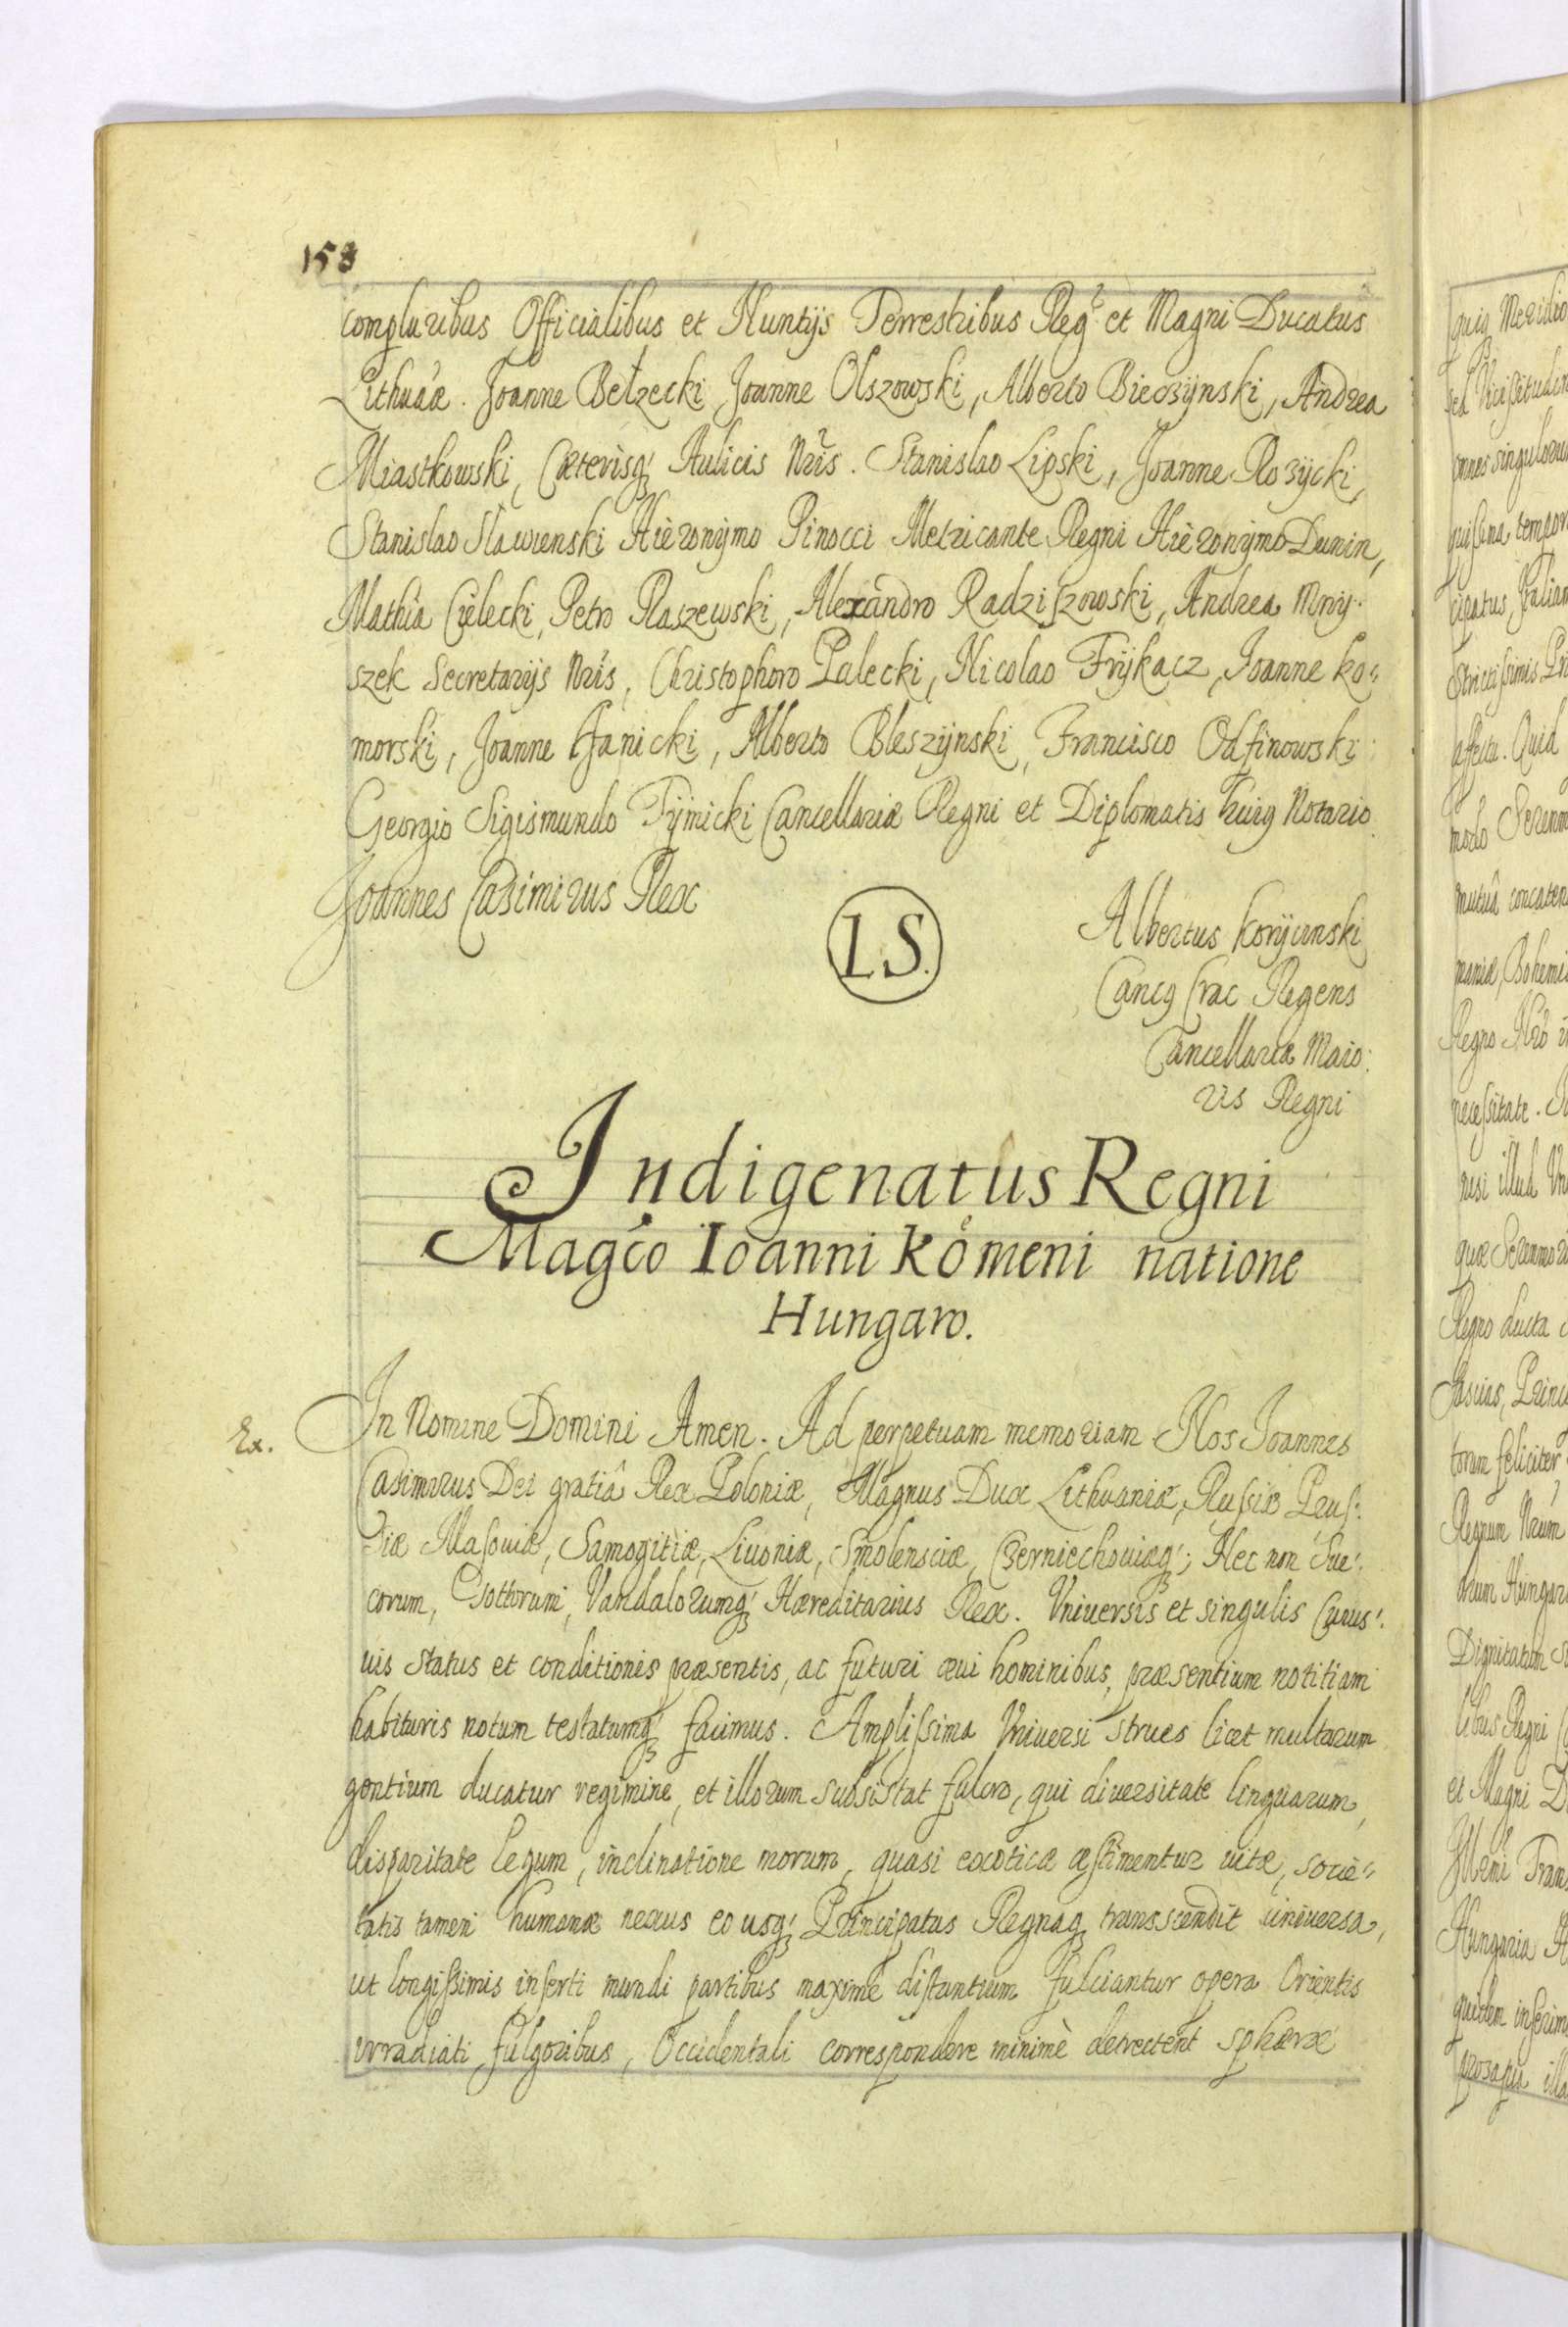 158
compluribus Officialibus et Nuntijs Terrestribus Regⁱ et Magni Ducatus
Lithuãæ. Joanne Bełzecki Joanne Olszowski, Alberto Bieczÿnski, Andrea
Miastkowski, Cæterisq́ꝫ Aulicis Nr̃is. Stanislao Lipski, Joanne Rozÿcki,
Stanislao Sławienski Hieronÿmo Pinocci Metricante Regni Hieronÿmo Dunin,
Mathia Cielecki, Petro Raszewski, Alexandro Radziszowski, Andrea Mny-
szek Secretarijs Nr̃is, Christophoro Palecki, Nicolao Frÿkacz, Joanne Ko-
morski, Joanne Janicki, Alberto Bleszÿnski, Francisco Odfinowski
Georgio Sigismundo Tÿmicki Cancellariæ Regni et Diplomatis huiꝰ Notario
Joannes Casimirus Rex
L.S.
Albertus Korÿcinski
Cancꝰ Crac Regens
Cancellariæ Maio:
ris Regni
Indigenatus Regni
Magc̃o Ioanni Kömeni natione
Hungaro.
Ex.
In Nomine Domini Amen. Ad perpetuam memoriam Nos Joannes
Casimirus Dei gratiâ Rex Poloniæ, Magnus Dux Lithvaniæ, Russiæ Prus-
siæ Masoviæ, Samogitiæ, Livoniæ, Smolensciæ, Czerniechoviæq́ꝫ; Nec non Sue-
corum, Gottorum, Vandalorumq́ꝫ Hæreditarius Rex. Vniversis et singulis Cuius-
uis status et conditionis præsentis, ac futuri æui hominibus, præsentium notitiam
habituris notum testatumq́ꝫ facimus. Amplissima Vniuersi strues licet multarum
gentium ducatur regimine, et illorum subsistat fulcro, qui diuersitate linguarum,
disparitate legum, inclinatione morum, quasi exoticæ æstimentur uitæ, socie-
tatis tamen humanæ nexus eo usq́ꝫ Principatus Regnaqꝫ transscendit uniuersa,
ut longissimis inserti mundi partibus maxime distantium fulciantur opera Orientis
irradiati fulgoribus, Occidentali correspondere minimè detrectent sphæræ